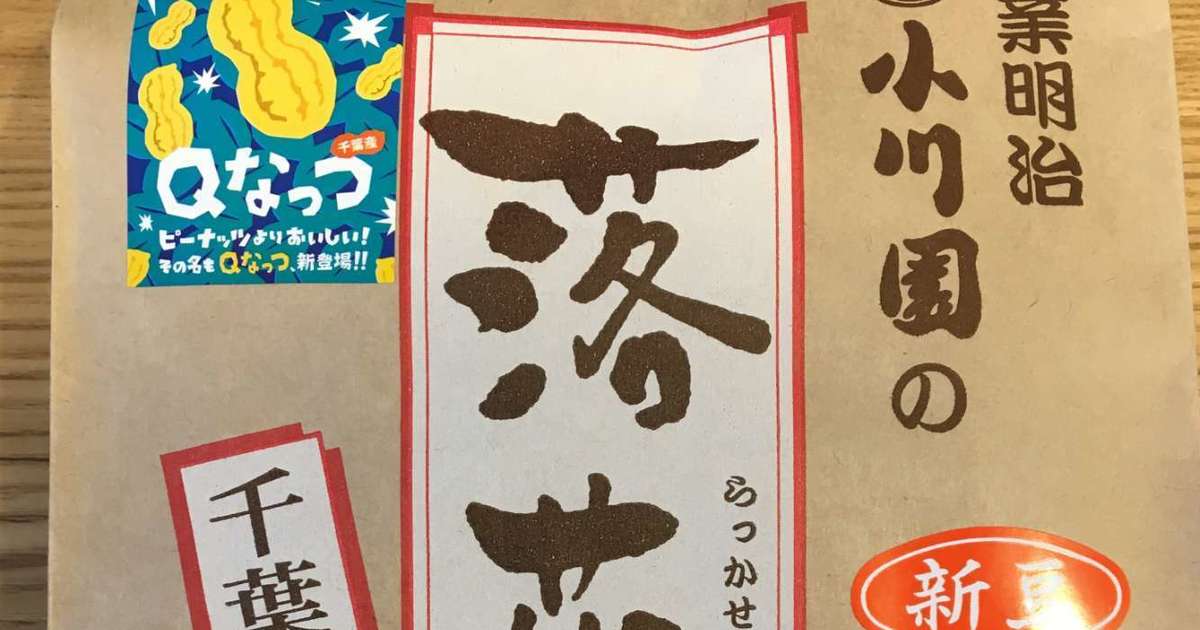 業明治
小川園の
落花
らっかせ
千葉産
Qなっつ
ピーナッツよりおいしい!
その名もQなっつ、新登場!!
千葉
新豆